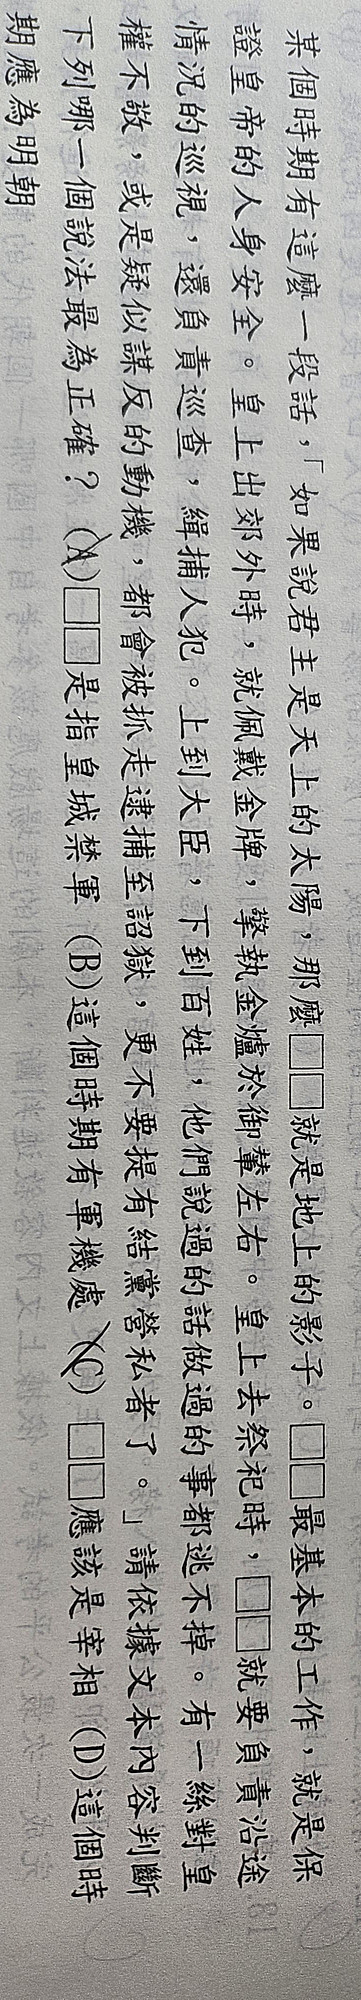 某個時期有這麼一段話，「如果說君主是天上的太陽，那麼□□就是地上的影子。□□最基本的工作，就是保
證皇帝的人身安全。皇上出郊外時，就佩戴金牌，擎執金爐於御輦左右。皇上去祭祀時，□□就要負責沿途
情況的巡視，還負責巡查，緝捕人犯。上到大臣，下到百姓，他們說過的話做過的事都逃不掉。有一絲對皇
權不敬，或是疑似謀反的動機，都會被抓走逮捕至詔獄，更不要提有結黨營私者了。」請依據文本內容判斷
下列哪一個說法最為正確？(A)□□是指皇城禁軍 (B)這個時期有軍機處 (C) □□應該是宰相 (D)這個時
期應為明朝